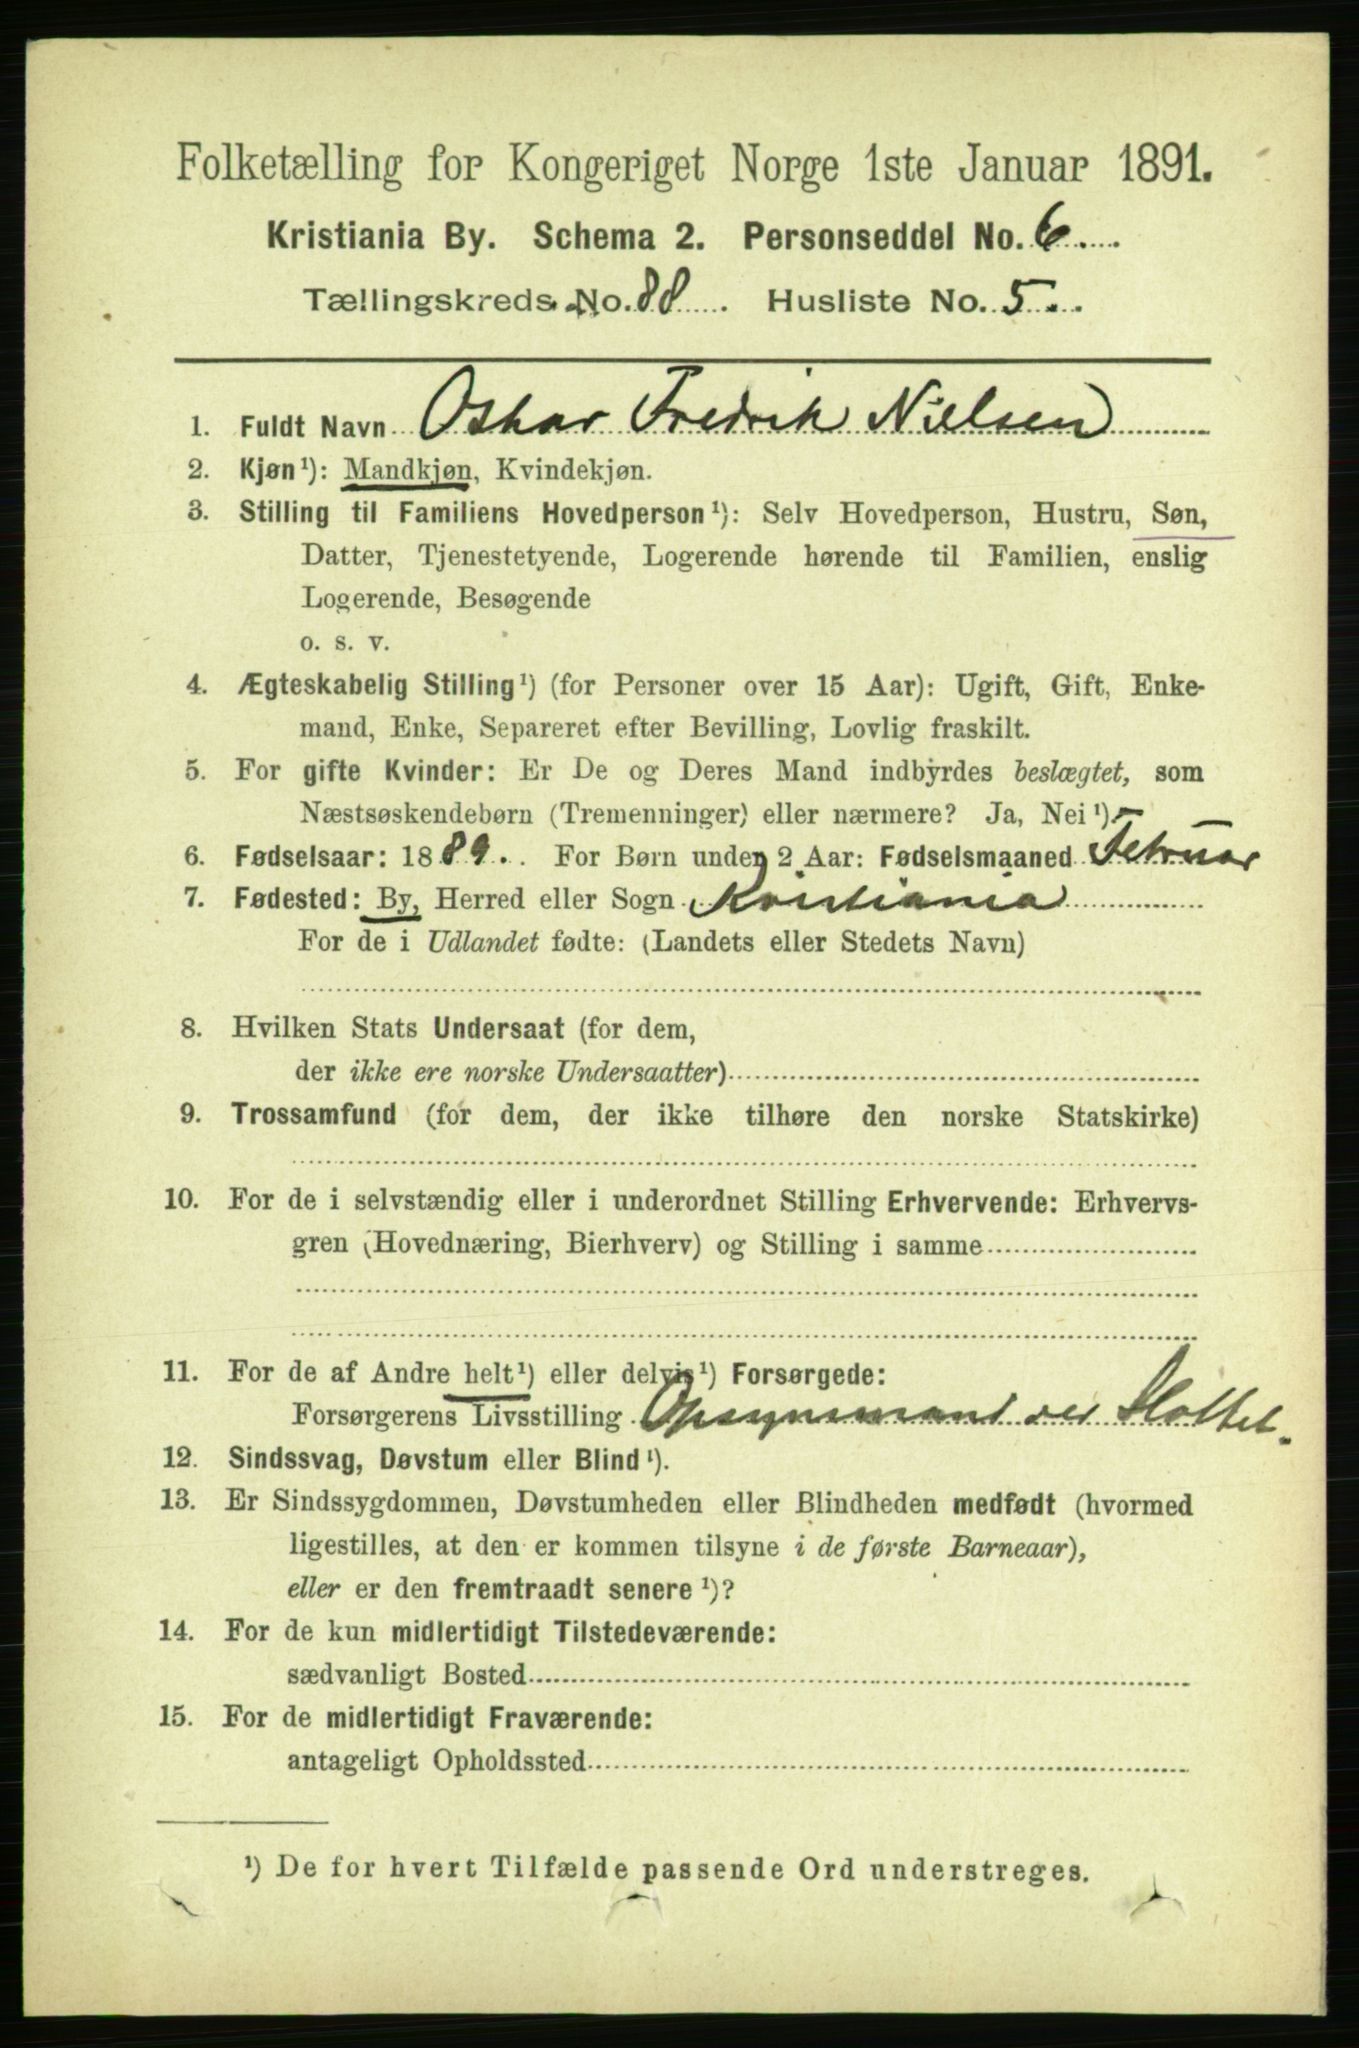 Folketælling for Kongeriget Norge 1ste Januar 1891.
Kristiania By. Schema 2. Personseddel No. 6
Tællingskreds No. 88. Husliste No. 5
1. Fuldt Navn Oskar Fredrik Nielsen
2. Kjøn¹): Mandkjøn, Kvindekjøn.
3. Stilling til Familiens Hovedperson¹): Selv Hovedperson, Hustru, Søn,
Datter, Tjenestetyende, Logerende hørende til Familien, enslig
Logerende, Besøgende
o. s. v.
4. Ægteskabelig Stilling¹) (for Personer over 15 Aar): Ugift, Gift, Enke-
mand, Enke, Separeret efter Bevilling, Lovlig fraskilt.
5. For gifte Kvinder: Er De og Deres Mand indbyrdes beslægtet, som
Næstsøskendebørn (Tremenninger) eller nærmere? Ja, Nei¹)
6. Fødselsaar: 1889. For Børn under 2 Aar: Fødselsmaaned Februar
7. Fødested: By, Herred eller Sogn Kristiania
For de i Udlandet fødte: (Landets eller Stedets Navn)
8. Hvilken Stats Undersaat (for dem,
der ikke ere norske Undersaatter)
9. Trossamfund (for dem, der ikke tilhøre den norske Statskirke)
10. For de i selvstændig eller i underordnet Stilling Erhvervende: Erhvervs-
gren (Hovednæring, Bierhverv) og Stilling i samme
11. For de af Andre helt¹) eller delvis¹) Forsørgede:
Forsørgerens Livsstilling Opsynsmand ved Slottet.
12. Sindssvag, Døvstum eller Blind¹).
13. Er Sindssygdommen, Døvstumheden eller Blindheden medfødt (hvormed
ligestilles, at den er kommen tilsyne i de første Barneaar),
eller er den fremtraadt senere¹)?
14. For de kun midlertidigt Tilstedeværende:
sædvanligt Bosted
15. For de midlertidigt Fraværende:
antageligt Opholdssted
¹) De for hvert Tilfælde passende Ord understreges.